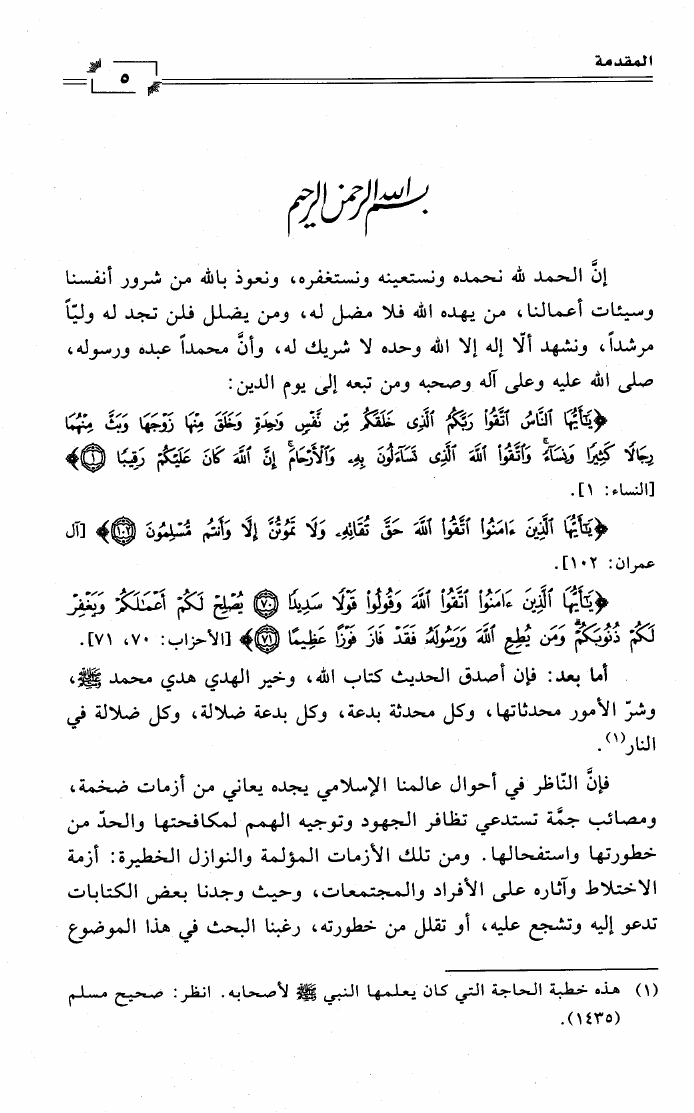 المقدمة
٥
بسم الله الرحمن الرحيم
إنَّ الحمد لله نحمده ونستعينه ونستغفره، ونعوذ بالله من شرور أنفسنا
وسيئات أعمالنا، من يهده الله فلا مضل له، ومن يضلل فلن تجد له وليّاً
مرشداً، ونشهد ألّا إله إلا الله وحده لا شريك له، وأنَّ محمداً عبده ورسوله،
صلى الله عليه وعلى آله وصحبه ومن تبعه إلى يوم الدين:
﴿يَٰٓأَيُّهَا ٱلنَّاسُ ٱتَّقُوا۟ رَبَّكُمُ ٱلَّذِى خَلَقَكُم مِّن نَّفْسٍ وَٰحِدَةٍ وَخَلَقَ مِنْهَا زَوْجَهَا وَبَثَّ مِنْهُمَا
رِجَالًا كَثِيرًا وَنِسَآءً ۚ وَٱتَّقُوا۟ ٱللَّهَ ٱلَّذِى تَسَآءَلُونَ بِهِۦ وَٱلْأَرْحَامَ ۚ إِنَّ ٱللَّهَ كَانَ عَلَيْكُمْ رَقِيبًا ۝١﴾
[النساء: ١].
﴿يَٰٓأَيُّهَا ٱلَّذِينَ ءَامَنُوا۟ ٱتَّقُوا۟ ٱللَّهَ حَقَّ تُقَاتِهِۦ وَلَا تَمُوتُنَّ إِلَّا وَأَنتُم مُّسْلِمُونَ ۝١٠٢﴾ [آل
عمران: ١٠٢].
﴿يَٰٓأَيُّهَا ٱلَّذِينَ ءَامَنُوا۟ ٱتَّقُوا۟ ٱللَّهَ وَقُولُوا۟ قَوْلًا سَدِيدًا ۝٧٠ يُصْلِحْ لَكُمْ أَعْمَٰلَكُمْ وَيَغْفِرْ
لَكُمْ ذُنُوبَكُمْ ۗ وَمَن يُطِعِ ٱللَّهَ وَرَسُولَهُۥ فَقَدْ فَازَ فَوْزًا عَظِيمًا ۝٧١﴾ [الأحزاب: ٧٠، ٧١].
أما بعد: فإن أصدق الحديث كتاب الله، وخير الهدي هدي محمد ﷺ،
وشرّ الأمور محدثاتها، وكل محدثة بدعة، وكل بدعة ضلالة، وكل ضلالة في
النار(١).
فإنَّ النّاظر في أحوال عالمنا الإسلامي يجده يعاني من أزمات ضخمة،
ومصائب جمَّة تستدعي تظافر الجهود وتوجيه الهمم لمكافحتها والحدّ من
خطورتها واستفحالها. ومن تلك الأزمات المؤلمة والنوازل الخطيرة: أزمة
الاختلاط وآثاره على الأفراد والمجتمعات، وحيث وجدنا بعض الكتابات
تدعو إليه وتشجع عليه، أو تقلل من خطورته، رغبنا البحث في هذا الموضوع
(١) هذه خطبة الحاجة التي كان يعلمها النبي ﷺ لأصحابه. انظر: صحيح مسلم
(١٤٣٥).